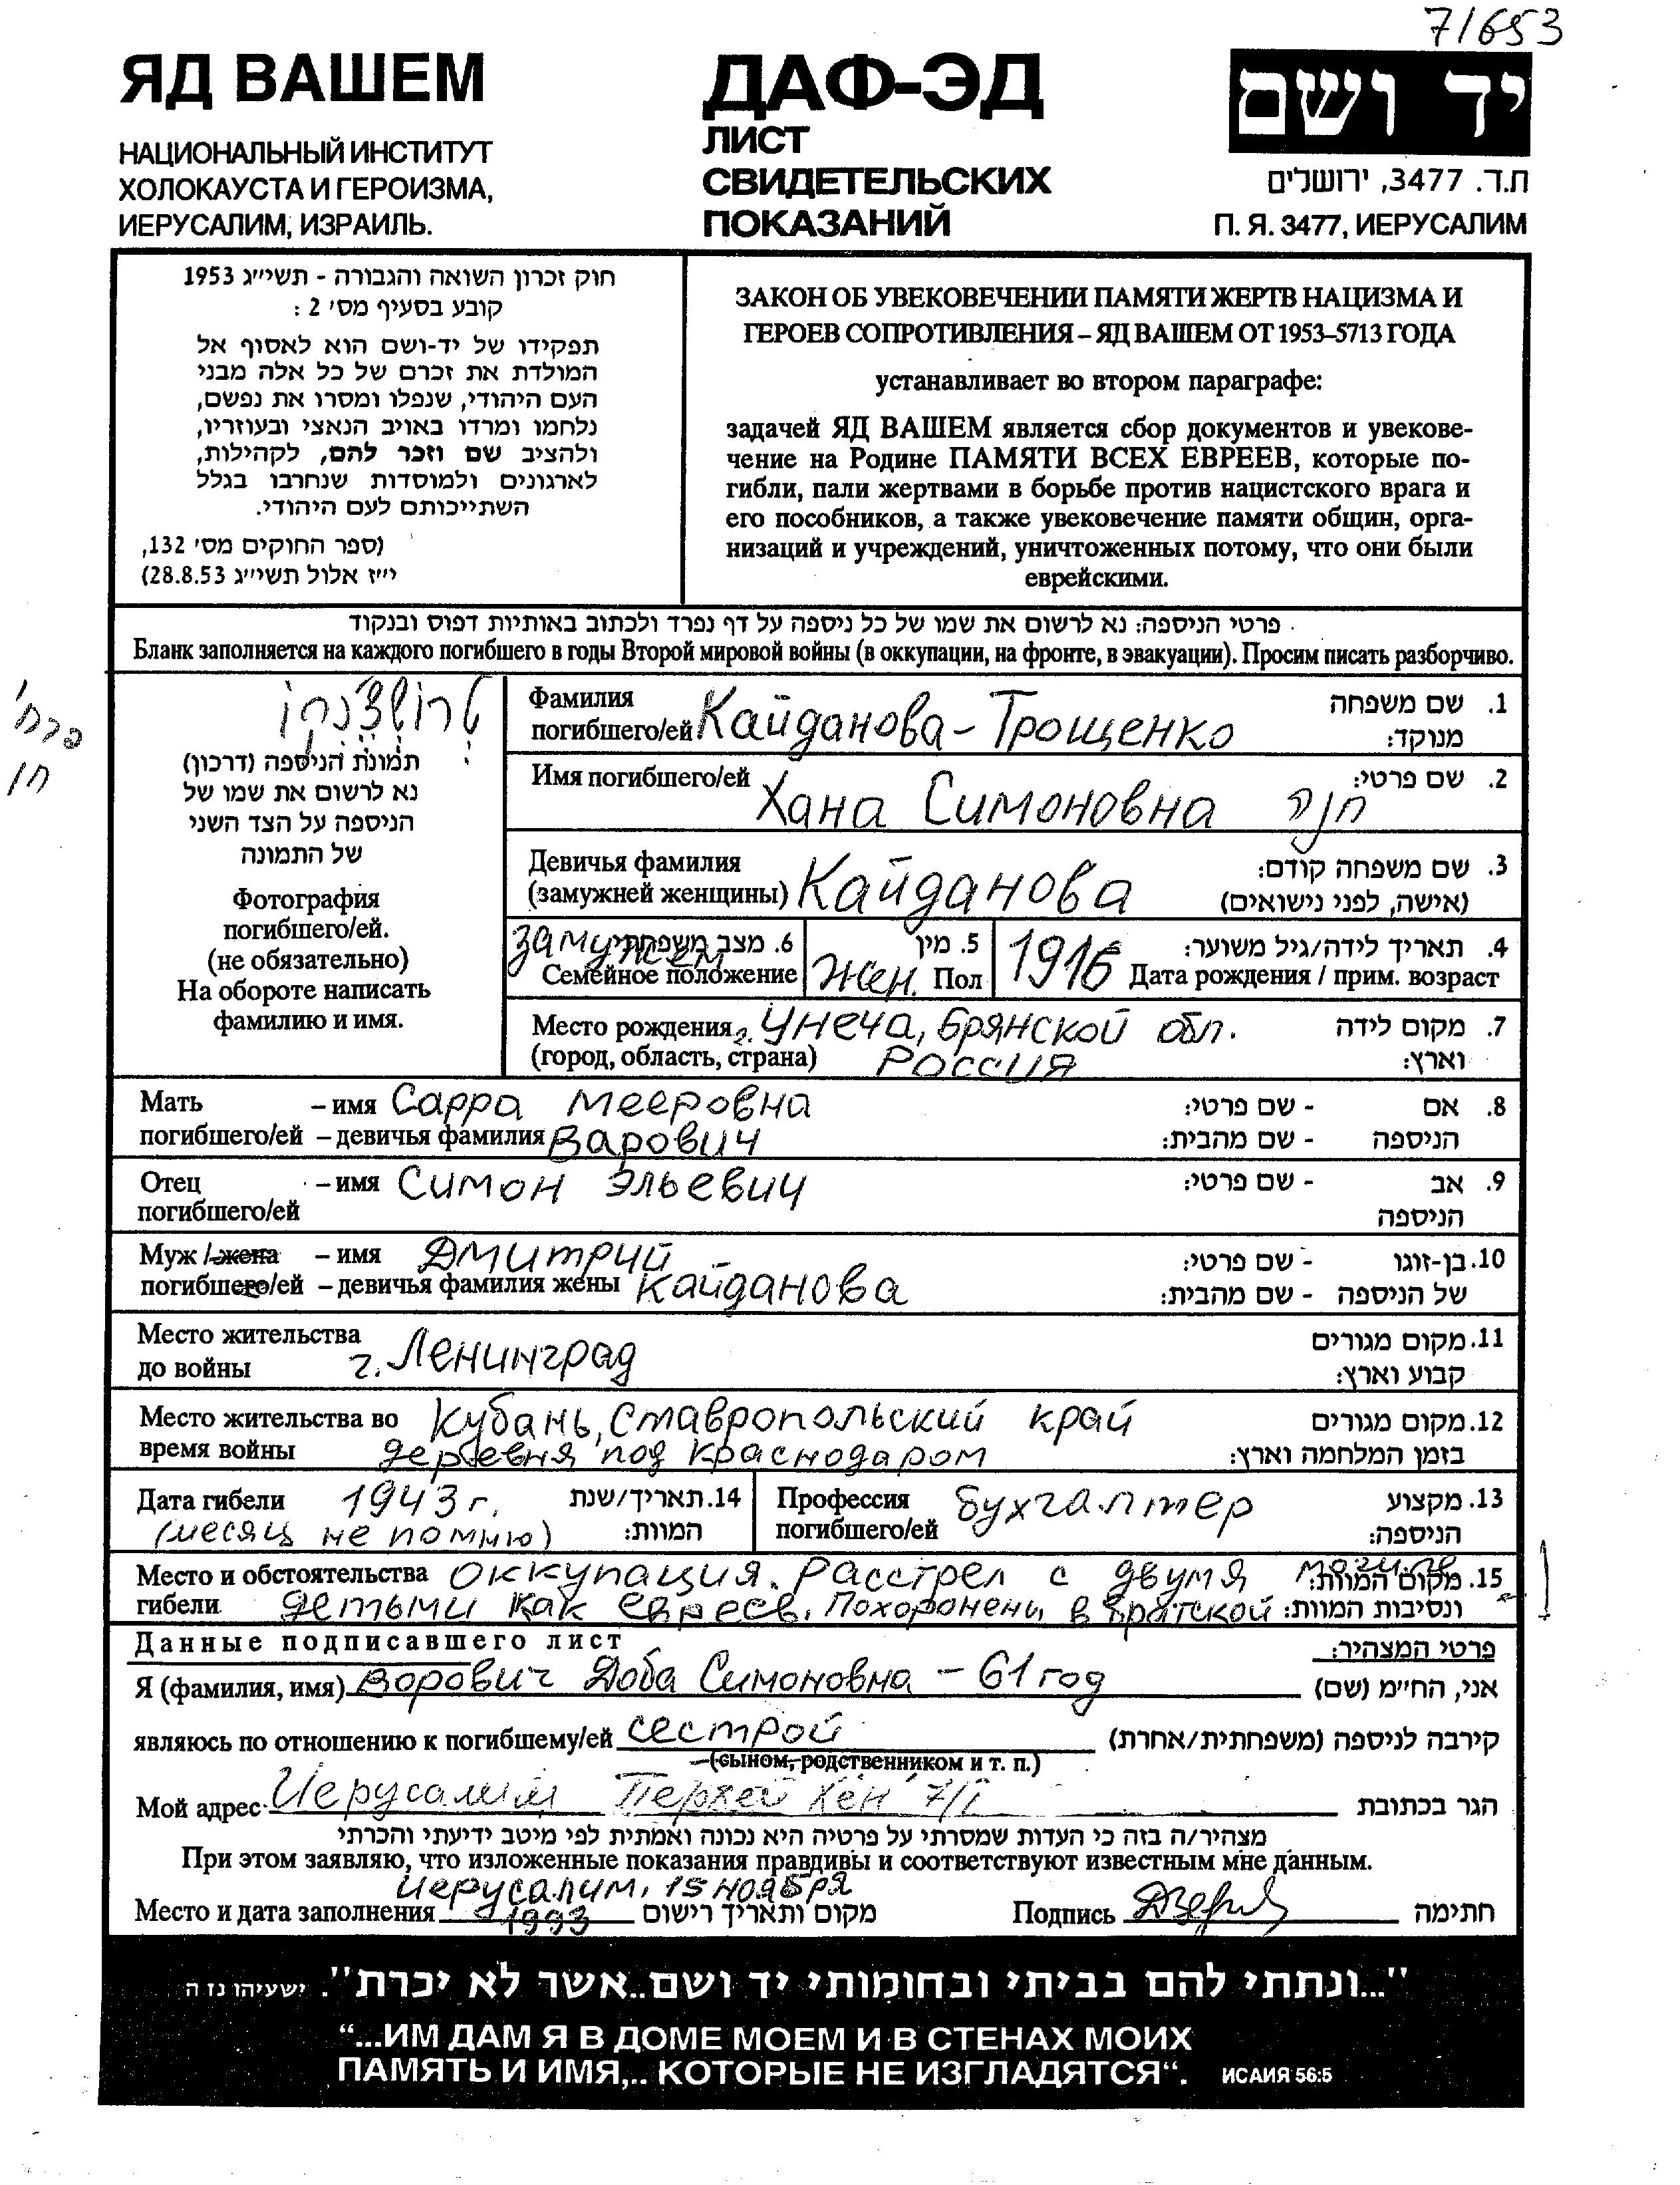 71653
ЯД ВАШЕМ
НАЦИОНАЛЬНЫЙ ИНСТИТУТ
ХОЛОКАУСТА И ГЕРОИЗМА,
ИЕРУСАЛИМ, ИЗРАИЛЬ.
ДАФ-ЭД
ЛИСТ
СВИДЕТЕЛЬСКИХ
ПОКАЗАНИЙ
יד ושם
ת.ד. 3477, ירושלים
П. Я. 3477, ИЕРУСАЛИМ
חוק זכרון השואה והגבורה - תשי״ג 1953
קובע בסעיף מס׳ 2 :
תפקידו של יד-ושם הוא לאסוף אל
המולדת את זכרם של כל אלה מבני
העם היהודי, שנפלו ומסרו את נפשם,
נלחמו ומרדו באויב הנאצי ובעוזריו,
ולהציב שם וזכר להם, לקהילות,
לארגונים ולמוסדות שנחרבו בגלל
השתייכותם לעם היהודי.
(ספר החוקים מס׳ 132,
י״ז אלול תשי״ג 28.8.53)
ЗАКОН ОБ УВЕКОВЕЧЕНИИ ПАМЯТИ ЖЕРТВ НАЦИЗМА И
ГЕРОЕВ СОПРОТИВЛЕНИЯ – ЯД ВАШЕМ ОТ 1953–5713 ГОДА
устанавливает во втором параграфе:
задачей ЯД ВАШЕМ является сбор документов и увекове-
чение на Родине ПАМЯТИ ВСЕХ ЕВРЕЕВ, которые по-
гибли, пали жертвами в борьбе против нацистского врага и
его пособников, а также увековечение памяти общин, орга-
низаций и учреждений, уничтоженных потому, что они были
еврейскими.
פרטי הניספה: נא לרשום את שמו של כל ניספה על דף נפרד ולכתוב באותיות דפוס ובנקוד
Бланк заполняется на каждого погибшего в годы Второй мировой войны (в оккупации, на фронте, в эвакуации). Просим писать разборчиво.
פרחי
חן
טרושצ'נקו
תמונת הניספה (דרכון)
נא לרשום את שמו של
הניספה על הצד השני
של התמונה
Фотография
погибшего/ей.
(не обязательно)
На обороте написать
фамилию и имя.
Фамилия
погибшего/ей Кайданова-Трощенко
1. שם משפחה
מנוקד:
Имя погибшего/ей Хана Симоновна חנה
2. שם פרטי:
Девичья фамилия
(замужней женщины) Кайданова
3. שם משפחה קודם:
(אישה, לפני נישואים)
замужем
6. מצב משפחתי
Семейное положение
жен. 5. מין
Пол
1916 4. תאריך לידה/גיל משוער:
Дата рождения / прим. возраст
Место рождения г. Унеча, Брянской обл.
(город, область, страна) Россия
7. מקום לידה
וארץ:
Мать – имя Сарра Мееровна
погибшего/ей – девичья фамилия Варович
8. אם - שם פרטי:
הניספה - שם מהבית:
Отец – имя Симон Эльевич
погибшего/ей
9. אב - שם פרטי:
הניספה
Муж / жена – имя Дмитрий
погибшего/ей – девичья фамилия жены Кайданова
10. בן-זוגו - שם פרטי:
של הניספה - שם מהבית:
Место жительства
до войны г. Ленинград
11. מקום מגורים
קבוע וארץ:
Место жительства во Кубань, Ставропольский край
время войны деревня под Краснодаром
12. מקום מגורים
בזמן המלחמה וארץ:
Дата гибели 1943 г.
(месяц не помню)
14. תאריך/שנת
המוות:
Профессия
погибшего/ей Бухгалтер
13. מקצוע
הניספה:
Место и обстоятельства оккупация. Расстрел с двумя
гибели детьми как евреев. Похоронены в братской могиле
15. מקום המוות:
ונסיבות המוות:
Данные подписавшего лист
פרטי המצהיר:
Я (фамилия, имя) Ворович Доба Симоновна – 61 год
אני, החי״מ (שם)
являюсь по отношению к погибшему/ей сестрой
קירבה לניספה (משפחתית/אחרת)
(сыном, родственником и т. п.)
Мой адрес Иерусалим Перхей Хен 7/1
הגר בכתובת
מצהיר/ה בזה כי העדות שמסרתי על פרטיה היא נכונה ואמתית לפי מיטב ידיעתי והכרתי
При этом заявляю, что изложенные показания правдивы и соответствуют известным мне данным.
Иерусалим, 15 ноября
Место и дата заполнения 1993 מקום ותאריך רישום
Подпись חתימה
"...ונתתי להם בביתי ובחומותי יד ושם..אשר לא יכרת". ישעיהו נז ה
“...ИМ ДАМ Я В ДОМЕ МОЕМ И В СТЕНАХ МОИХ
ПАМЯТЬ И ИМЯ,.. КОТОРЫЕ НЕ ИЗГЛАДЯТСЯ“. ИСАИЯ 56:5